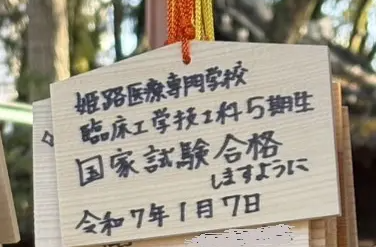 姫路医療専門学校
臨床工学技士科5期生
国家試験合格
しますように
令和7年1月7日